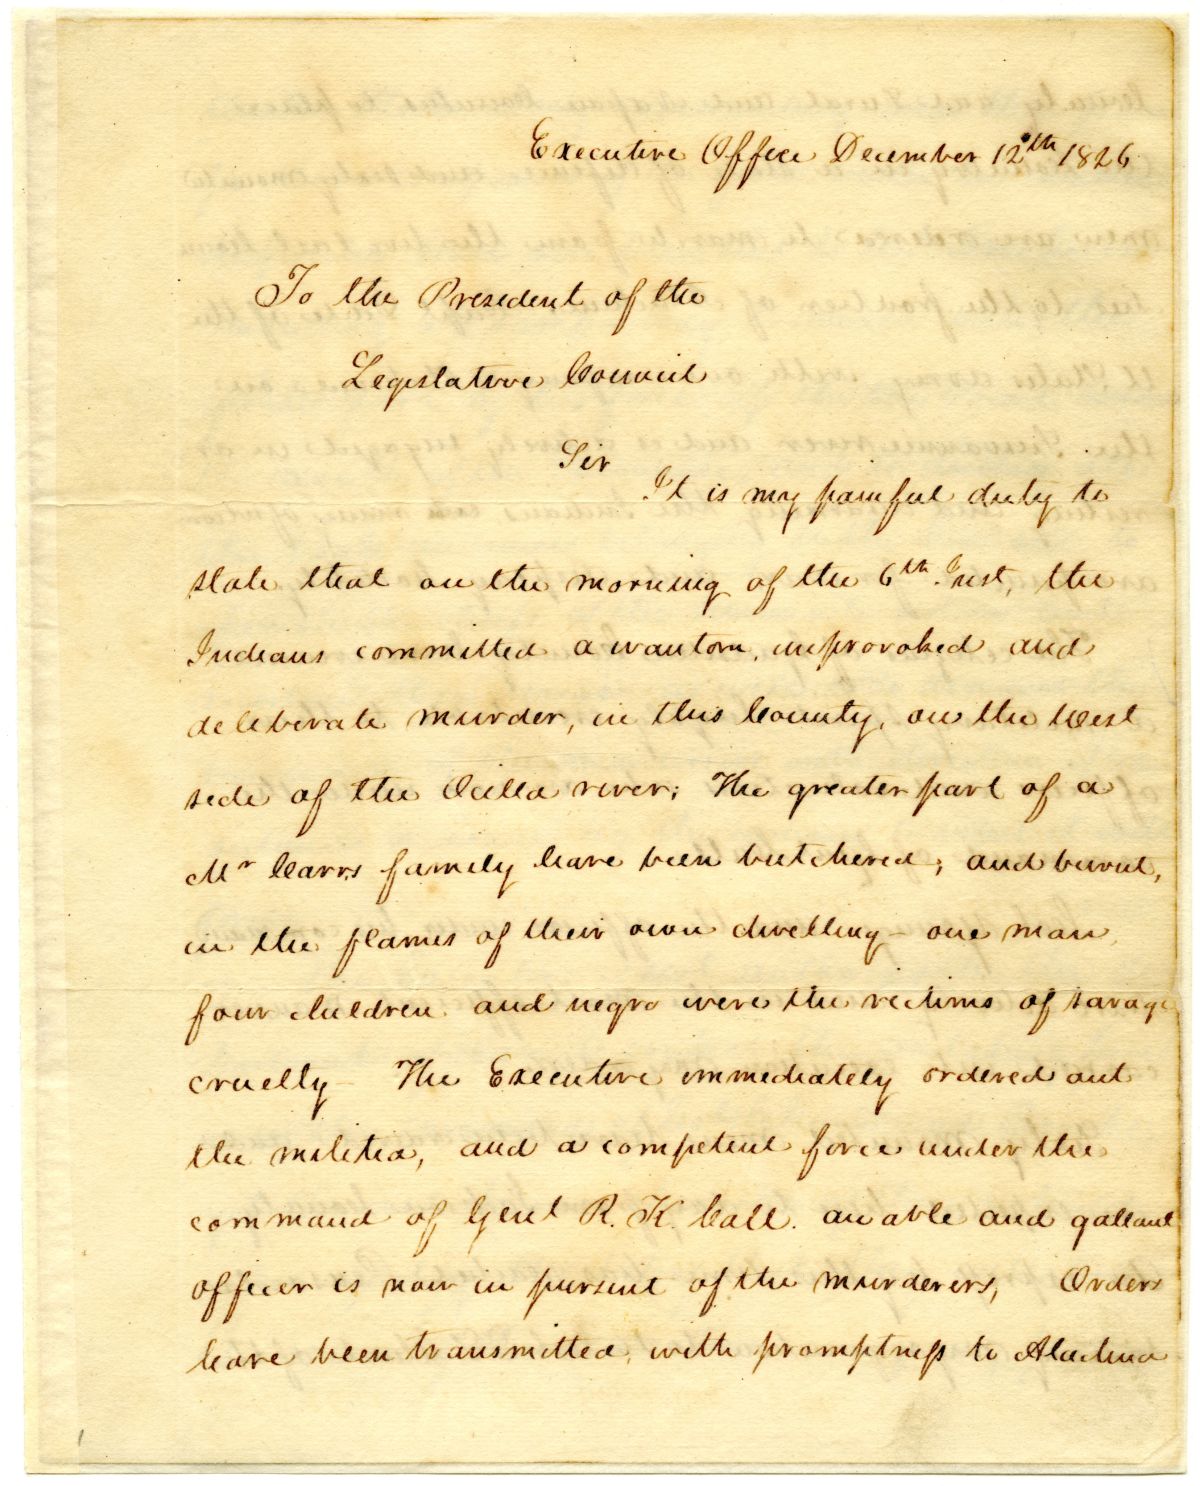 Executive Office December 12th 1826
To the President of the
Legislative Council
Sir
It is my painful duty to
state that on the morning of the 6th Inst, the
Indians committed a wanton, unprovoked and
deliberate murder, in this County, on the West
side of the Ocilla river; The greater part of a
Mr Carrs family have been butchered; and burnt,
in the flames of their own dwelling - one man,
four children and negro were the victims of savage
cruelty - The Executive immediately ordered out
the militia, and a competent force under the
command of Genl R. K. Call. an able and gallant
officer is now in pursuit of the murderers, Orders
have been transmitted, with promptness to Alachua
1